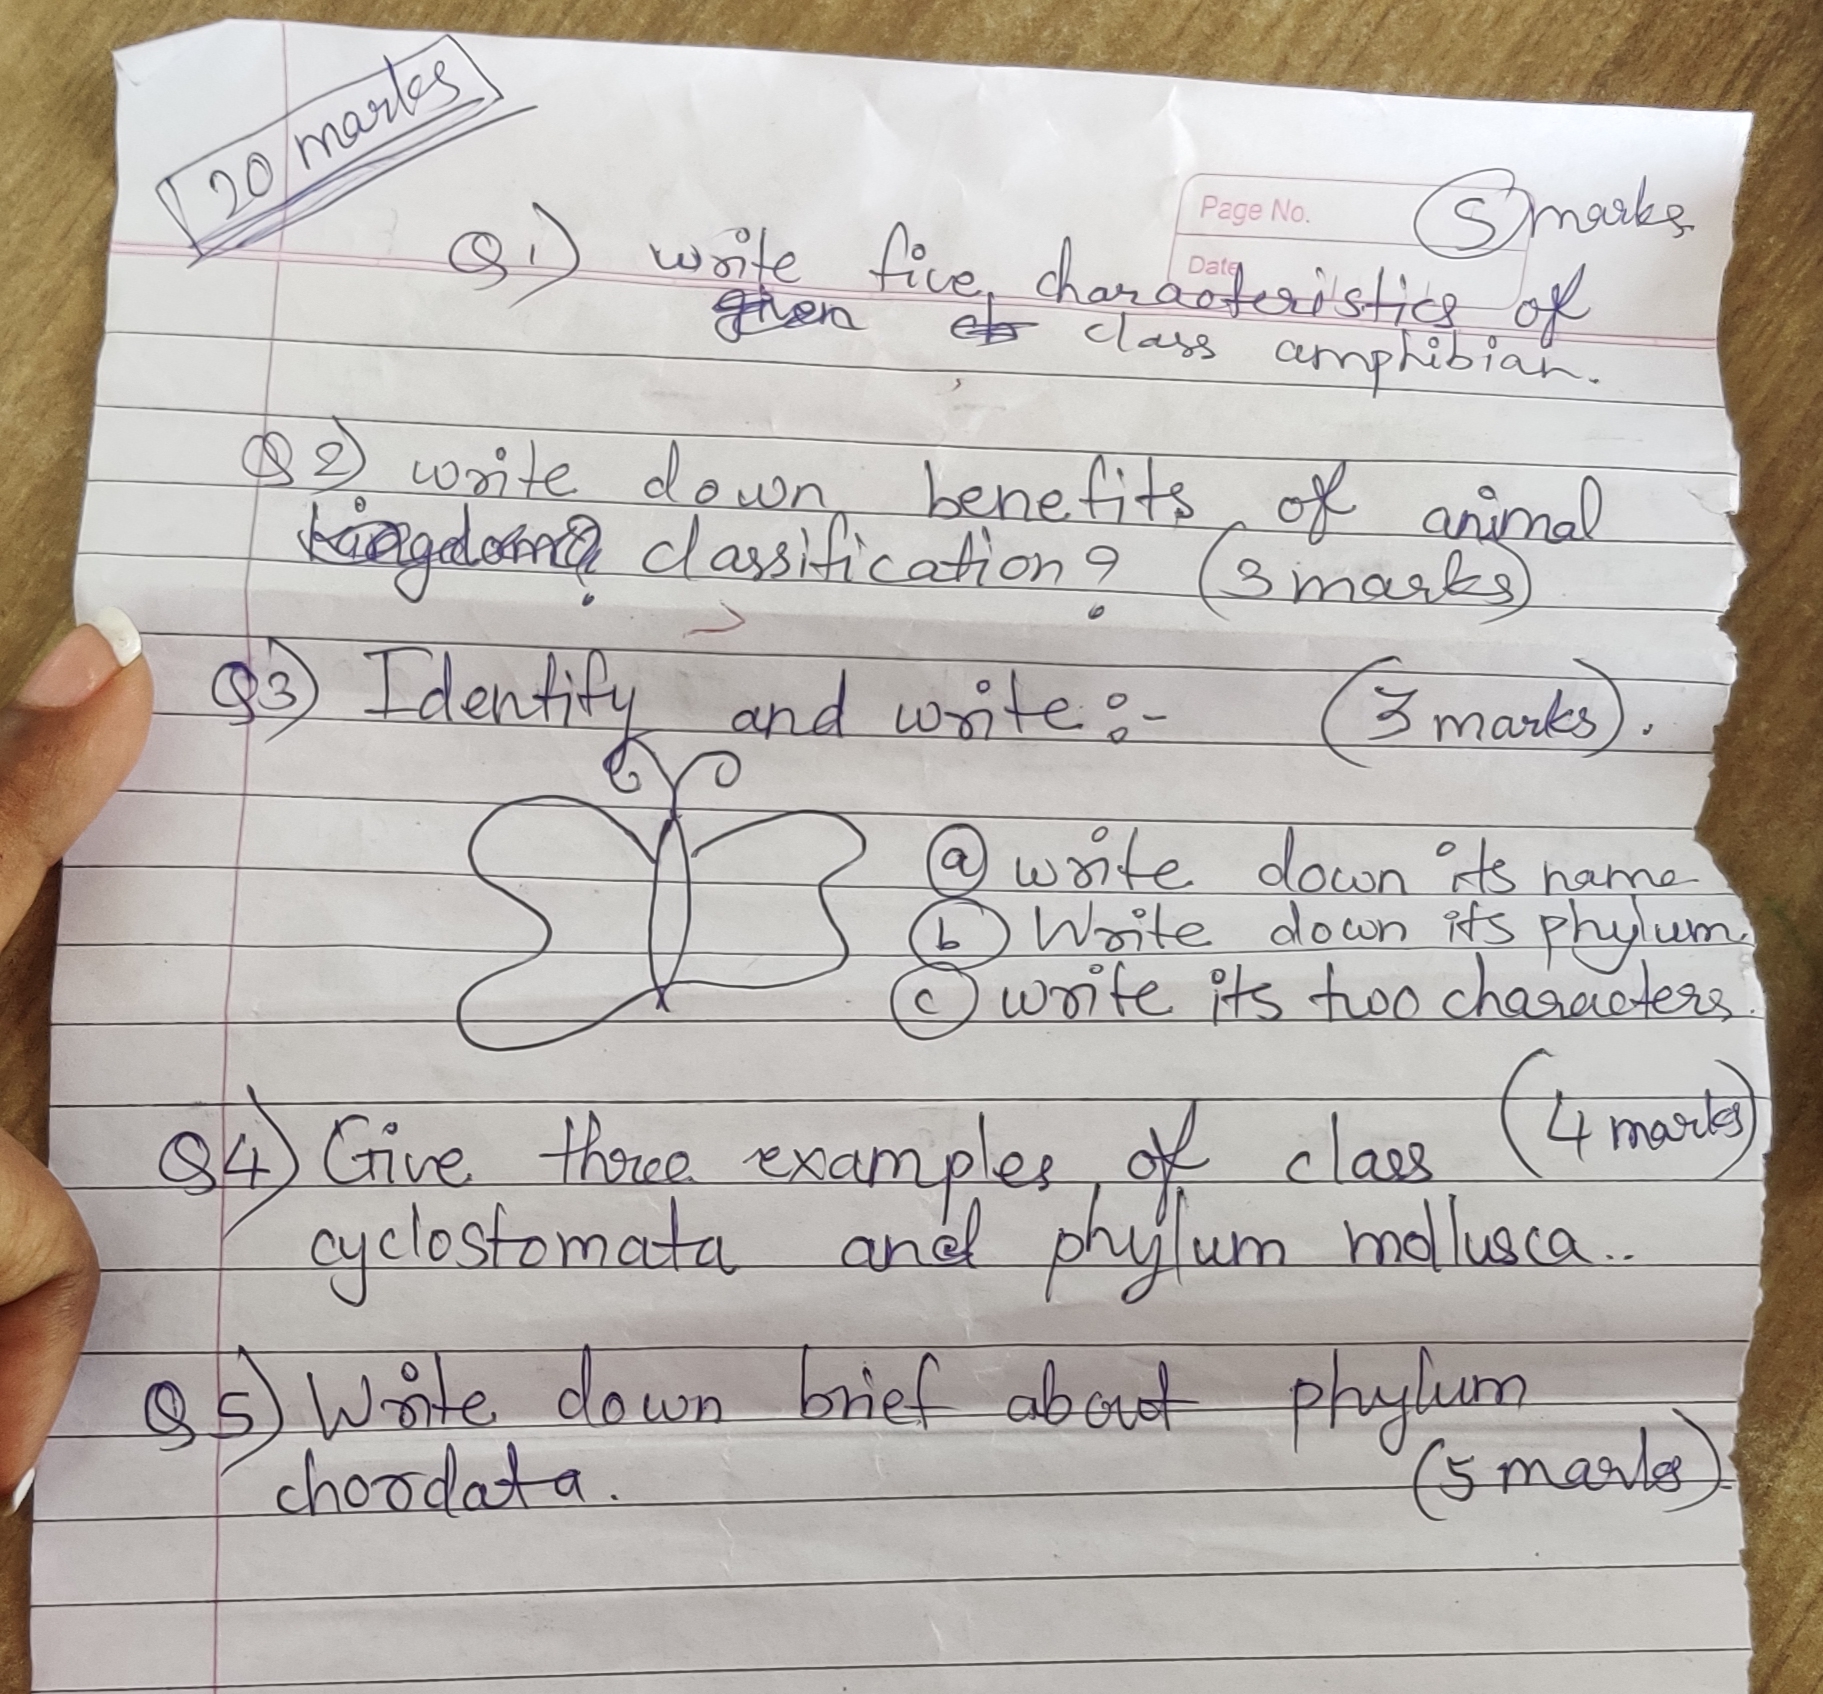 20 marks
Page No.
5 marks
Date
Q1) write five characteristics of
given class amphibian.
Q2) write down benefits of animal
kingdom? classification? (3 marks)
Q3) Identify and write :- (3 marks).
a write down its name
b Write down its phylum.
c write its two characters.
(4 marks)
Q4) Give three examples of class
cyclostomata and phylum mollusca..
Q5) Write down brief about phylum
chordata. (5 marks)